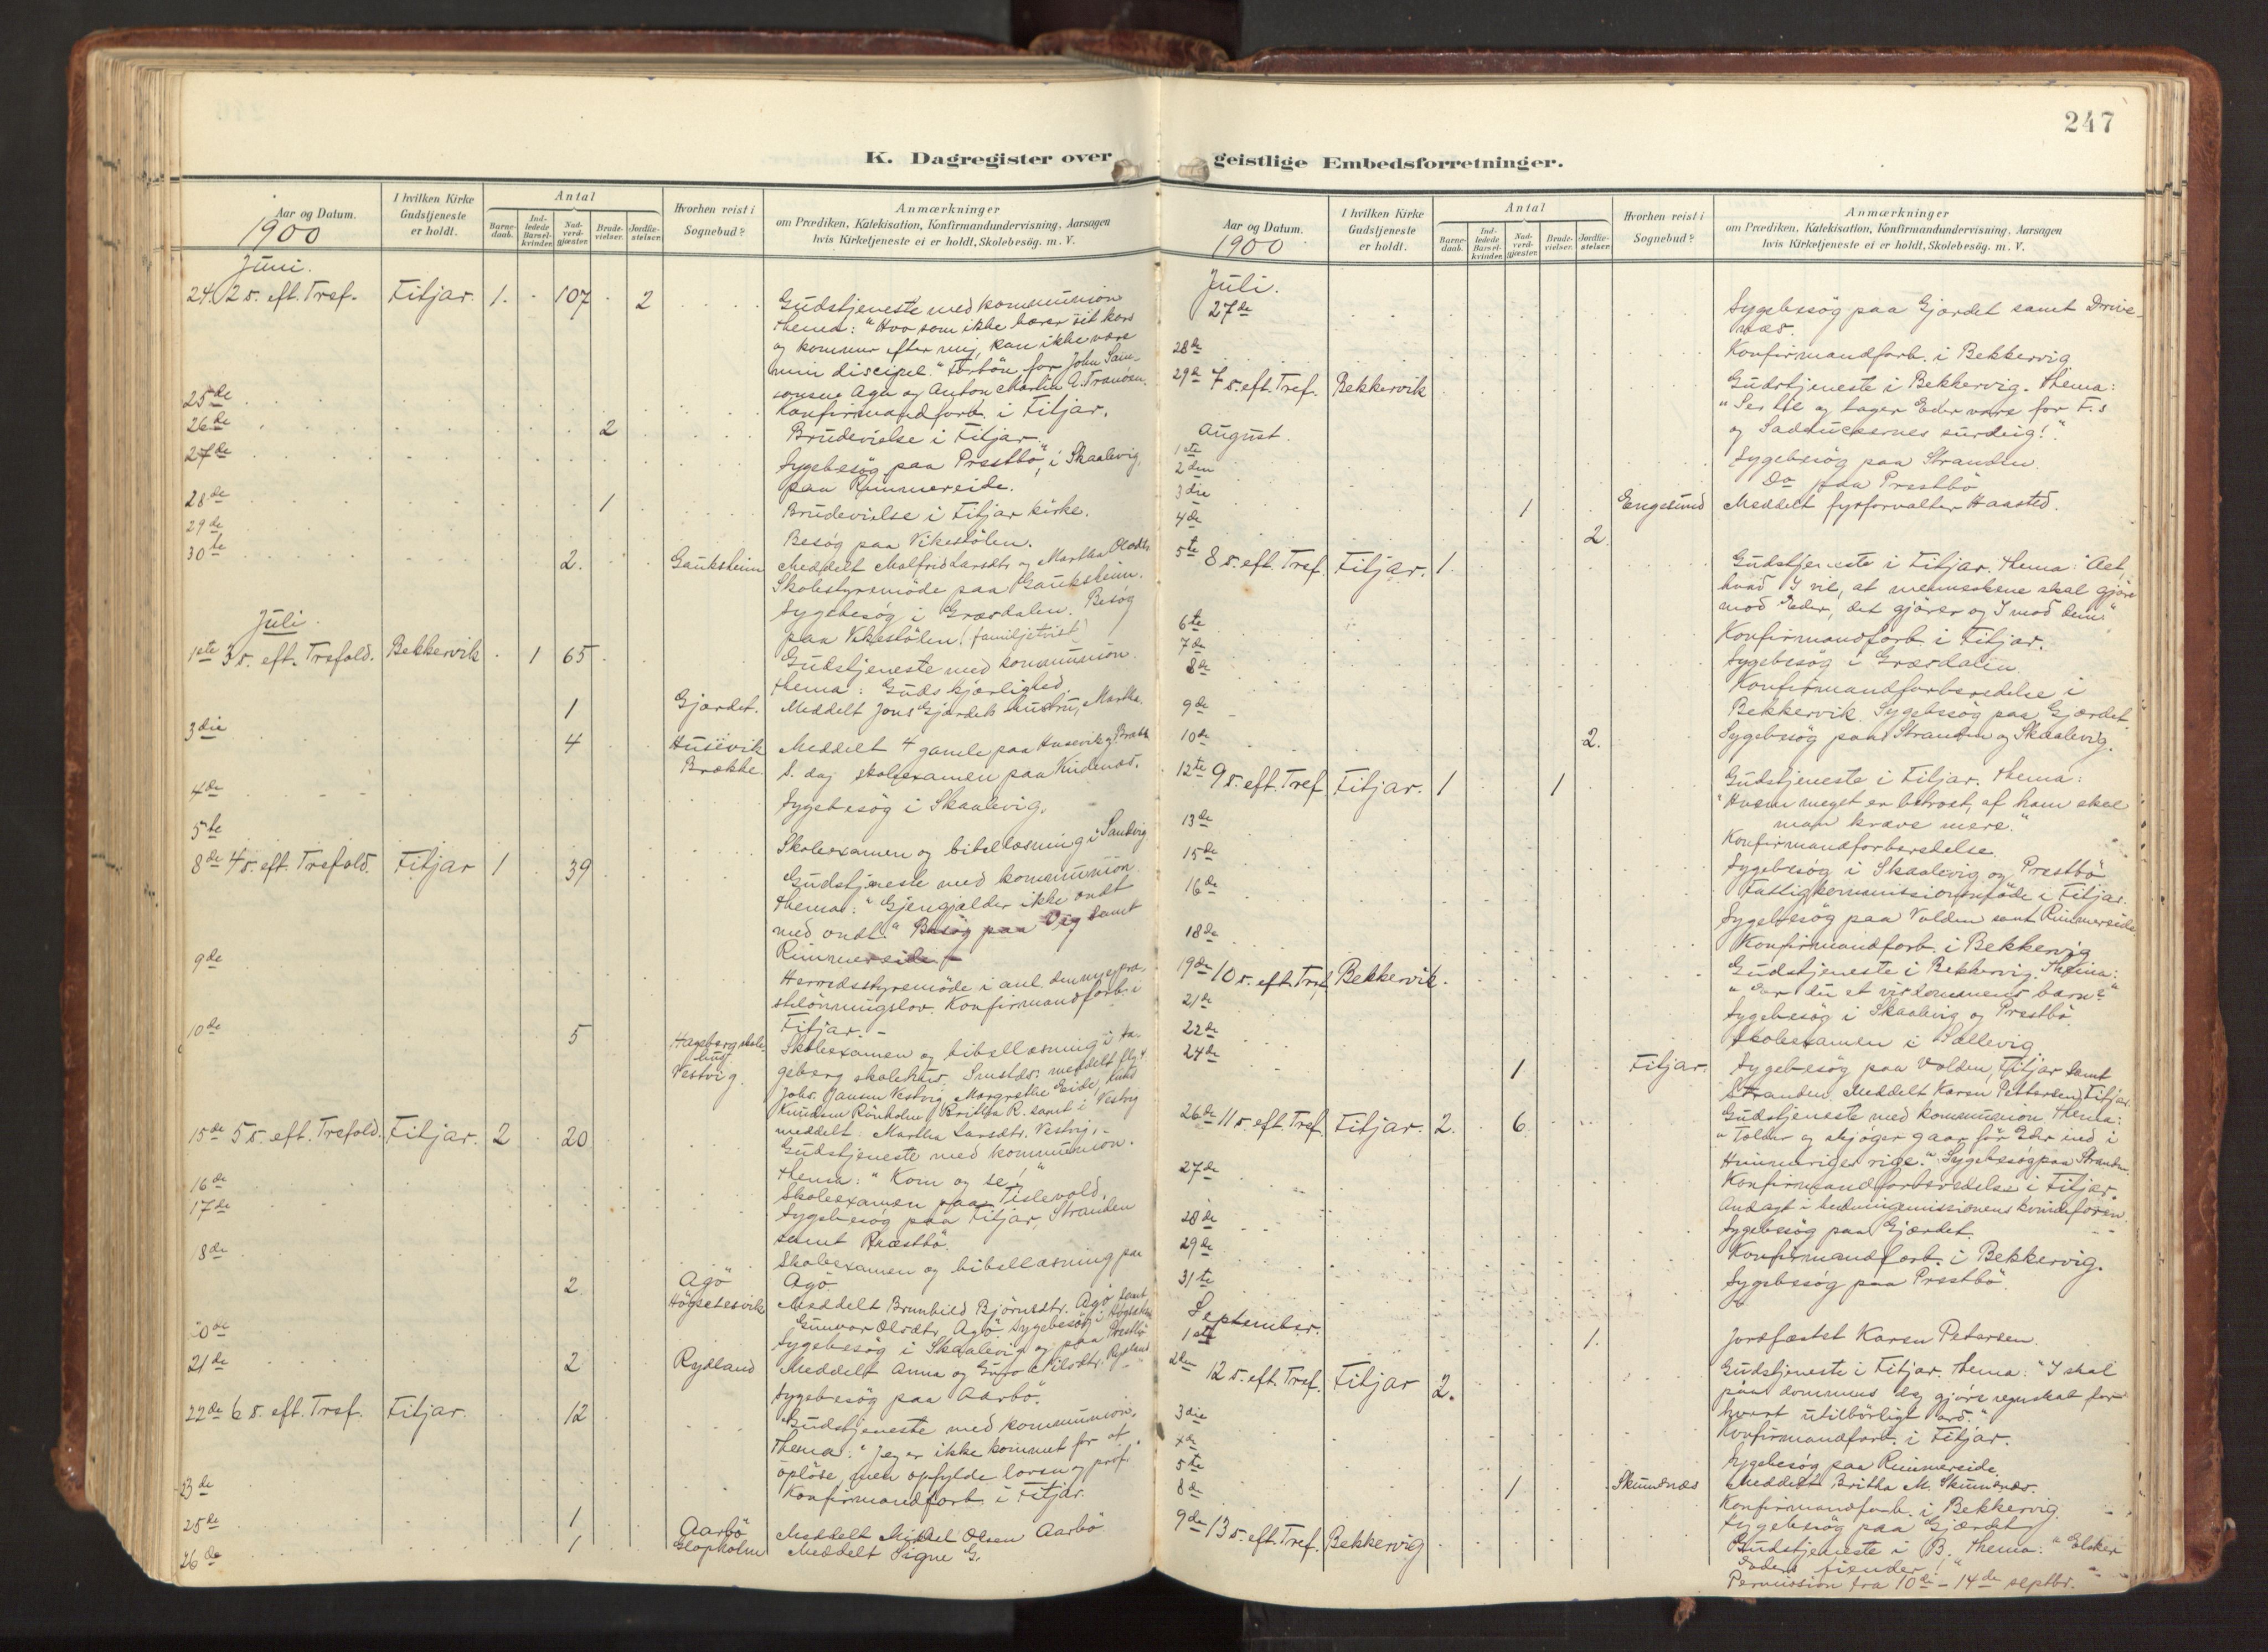 247
K. Dagregister over geistlige Embedsforretninger.
Aar og Datum.
1900
I hvilken Kirke Gudstjeneste er holdt.
Antal
Barnedaab.
Indledede Barselkvinder.
Nadverdgjæster.
Brudevielser.
Jordfæstelser.
Hvorhen reist i Sognebud?
Anmærkninger
om Prædiken, Katekisation, Konfirmandundervisning, Aarsagen
hvis Kirketjeneste ei er holdt, Skolebesög. m. V.
Juni.
24. 2 s. eft. Tref. Fitjar. 1. 107 2 Gudstjeneste med kommunion
thema: "Hvo som ikke bærer sit kors
og kommer efter mig, kan ikke være
min discipel." Forbön for John Sam-
sonsen Agø og Anton Martin A. Tranøsen.
25de Konfirmandforb. i Fitjar.
26de 2 Brudevielse i Fitjar.
27de Sygebesög paa Prestbö, i Skaalevig,
paa Rimmereide.
28de 1 Brudevielse i Fitjar kirke.
29de Besög paa Vikestölen.
30te 2. Gauksheim Meddelt Malfrid Larsdtr og Martha Olsdtr
Skolestyremöde paa Gauksheim.
Sygebesög i Grærdalen. Besög
paa Vikestölen (familjetvist)
Juli.
1ste 3 s. eft. Trefold. Bekkervik 1 65 Gudstjeneste med kommunion.
thema: Guds kjærlighed.
1 Gjærdet. Meddelt Jens Gjærdets hustru, Martha.
3die 4 Husevik Brække. Meddelt 4 gamle paa Husevik og Brække
S. dag skolexamen paa Kidenæs.
4de Sygebesög i Skaalevig.
5te Skolexamen og bibellæsning i Sandvig
8de 4 s. eft. Trefold. Fitjar 1 39 Gudstjeneste med kommunion
thema: "Gjengjælder ikke ondt
med ondt." Besög paa Vig samt
Rimmereide.
9de Herredsstyremöde i anl. den nye præ-
stelönningslov. Konfirmandforb. i
Fitjar.
10de 5 Hageberg skolehus Vestvig. Skolexamen og bibellæsning i Ha-
geberg skolehus. meddelt flg. 4
Johs. Jansen Vestvig, Margrethe Eide, Knud
Knudsen Rönholm, Britha R. samt i Vestvig
meddelt: Martha Larsdtr. Vestvig.
15de 5 s. eft. Trefold. Fitjar. 2 20 Gudstjeneste med kommunion.
thema: "Kom og se!"
16de Skolexamen paa Tislevold.
17de Sygebesög paa Fitjar, Stranden
samt Præstbö.
18de Skolexamen og bibellæsning paa
Agö
2 Agö Högsetesvik Meddelt Brunhild Björnsdtr. Agö samt
Gunvor Olsdtr. Agö. Sygebesög i
20de Sygebesög i Skaalevig og paa Prestbö
21de 2 Rydland Meddelt Anna og Nilsdtr. Rydland
Sygebesög paa Aarbö.
22de 6 s. eft. Tref. Fitjar. 12 Gudstjeneste med kommunion.
Thema: "Jeg er ikke kommet for at
oplöse, men opfylde loven og prof."
23de Konfirmandforb. i Fitjar.
25de 1 Aarbö Meddelt Mikkel Olsen Aarbö
26de 1 Glopholm Meddelt Signe G.
Aar og Datum.
1900
I hvilken Kirke Gudstjeneste er holdt.
Antal
Barnedaab.
Indledede Barselkvinder.
Nadverdgjæster.
Brudevielser.
Jordfæstelser.
Hvorhen reist i Sognebud?
Anmærkninger
om Prædiken, Katekisation, Konfirmandundervisning, Aarsagen
hvis Kirketjeneste ei er holdt, Skolebesög. m. V.
Juli.
27de Sygebesög paa Gjærdet samt Drive-
næs.
28de Konfirmandforb. i Bekkervig
29de 7 s. eft. Tref. Bekkervik Gudstjeneste i Bekkervig. Thema:
"Ser til og tager Eder vare for F.s
og Sadducæernes surdeig!"
August.
1ste Sygebesög paa Stranden.
2den Do paa Prestbö
3die 1 Engesund Meddelt fyrforvalter Haasted.
4de 2
5te 8 s. eft. Tref. Fitjar. 1 Gudstjeneste i Fitjar. thema: "Alt,
hvad I vil, at menneskene skal gjöre
mod Eder, det gjörer og I mod dem"
6te Konfirmandforb. i Fitjar.
7de Sygebesög i Grærdalen
8de Konfirmandforberedelse i
Bekkervik. Sygebesög paa Gjærdet.
9de Sygebesög paa Stranden og Skaalevig.
10de 2.
12te 9 s. eft. Tref. Fitjar. 1 1 Gudstjeneste i Fitjar. thema:
"Hvem meget er betroet, af ham skal
man kræve mere."
13de Konfirmandforberedelse.
15de Sygebesög i Skaalevig og Prestbö
16de Fattigkommissionsmöde i Fitjar.
Sygebesög paa Volden samt Rimmereide
18de Konfirmandforb. i Bekkervig
19de 10 s. eft. Tref. Bekkervik. Gudstjeneste i Bekkervig. Thema:
"Er du et visdommens barn?"
21de Sygebesög i Skaalevig og Prestbö.
22de Skolexamen i Sællevig
24de 1 Fitjar. Sygebesög paa Volden, Fitjar samt
Stranden. Meddelt Karen Pettersen, Fitjar.
26de 11 s. eft. Tref. Fitjar. 2. 6 Gudstjeneste med kommunion. Thema:
"Tolder og skjöger gaar för Eder ind i
Himmeriges rige." Sygebesög paa Stranden.
27de Konfirmandforberedelse i Fitjar.
Andagt i hedningemissionens kvindeforen.
28de Sygebesög paa Gjærdet.
29de Konfirmandforb. i Bekkervig.
31te Sygebesög paa Prestbö
September.
1ste 1. Jordfæstet Karen Petersen.
2den 12 s. eft. Tref. Fitjar 2. Gudstjeneste i Fitjar. thema: "I skal
paa dommens dag gjöre regnskab for
hvert utilbörligt ord."
3die Konfirmandforb. i Fitjar.
5te Sygebesög paa Rimmereide.
8de 1 Skumsnæs Meddelt Britha M. Skumsnæs.
Konfirmandforb. i Bekkervig.
Sygebesög paa Gjærdet
9de 13 s. eft. Tref. Bekkervig Gudstjeneste i B. thema: "Elsker
Eders fiender!"
Permission fra 10de - 14de septbr.